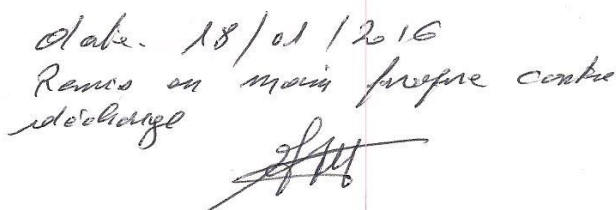 date. 18/01/2016
Remis en main propre contre
décharge